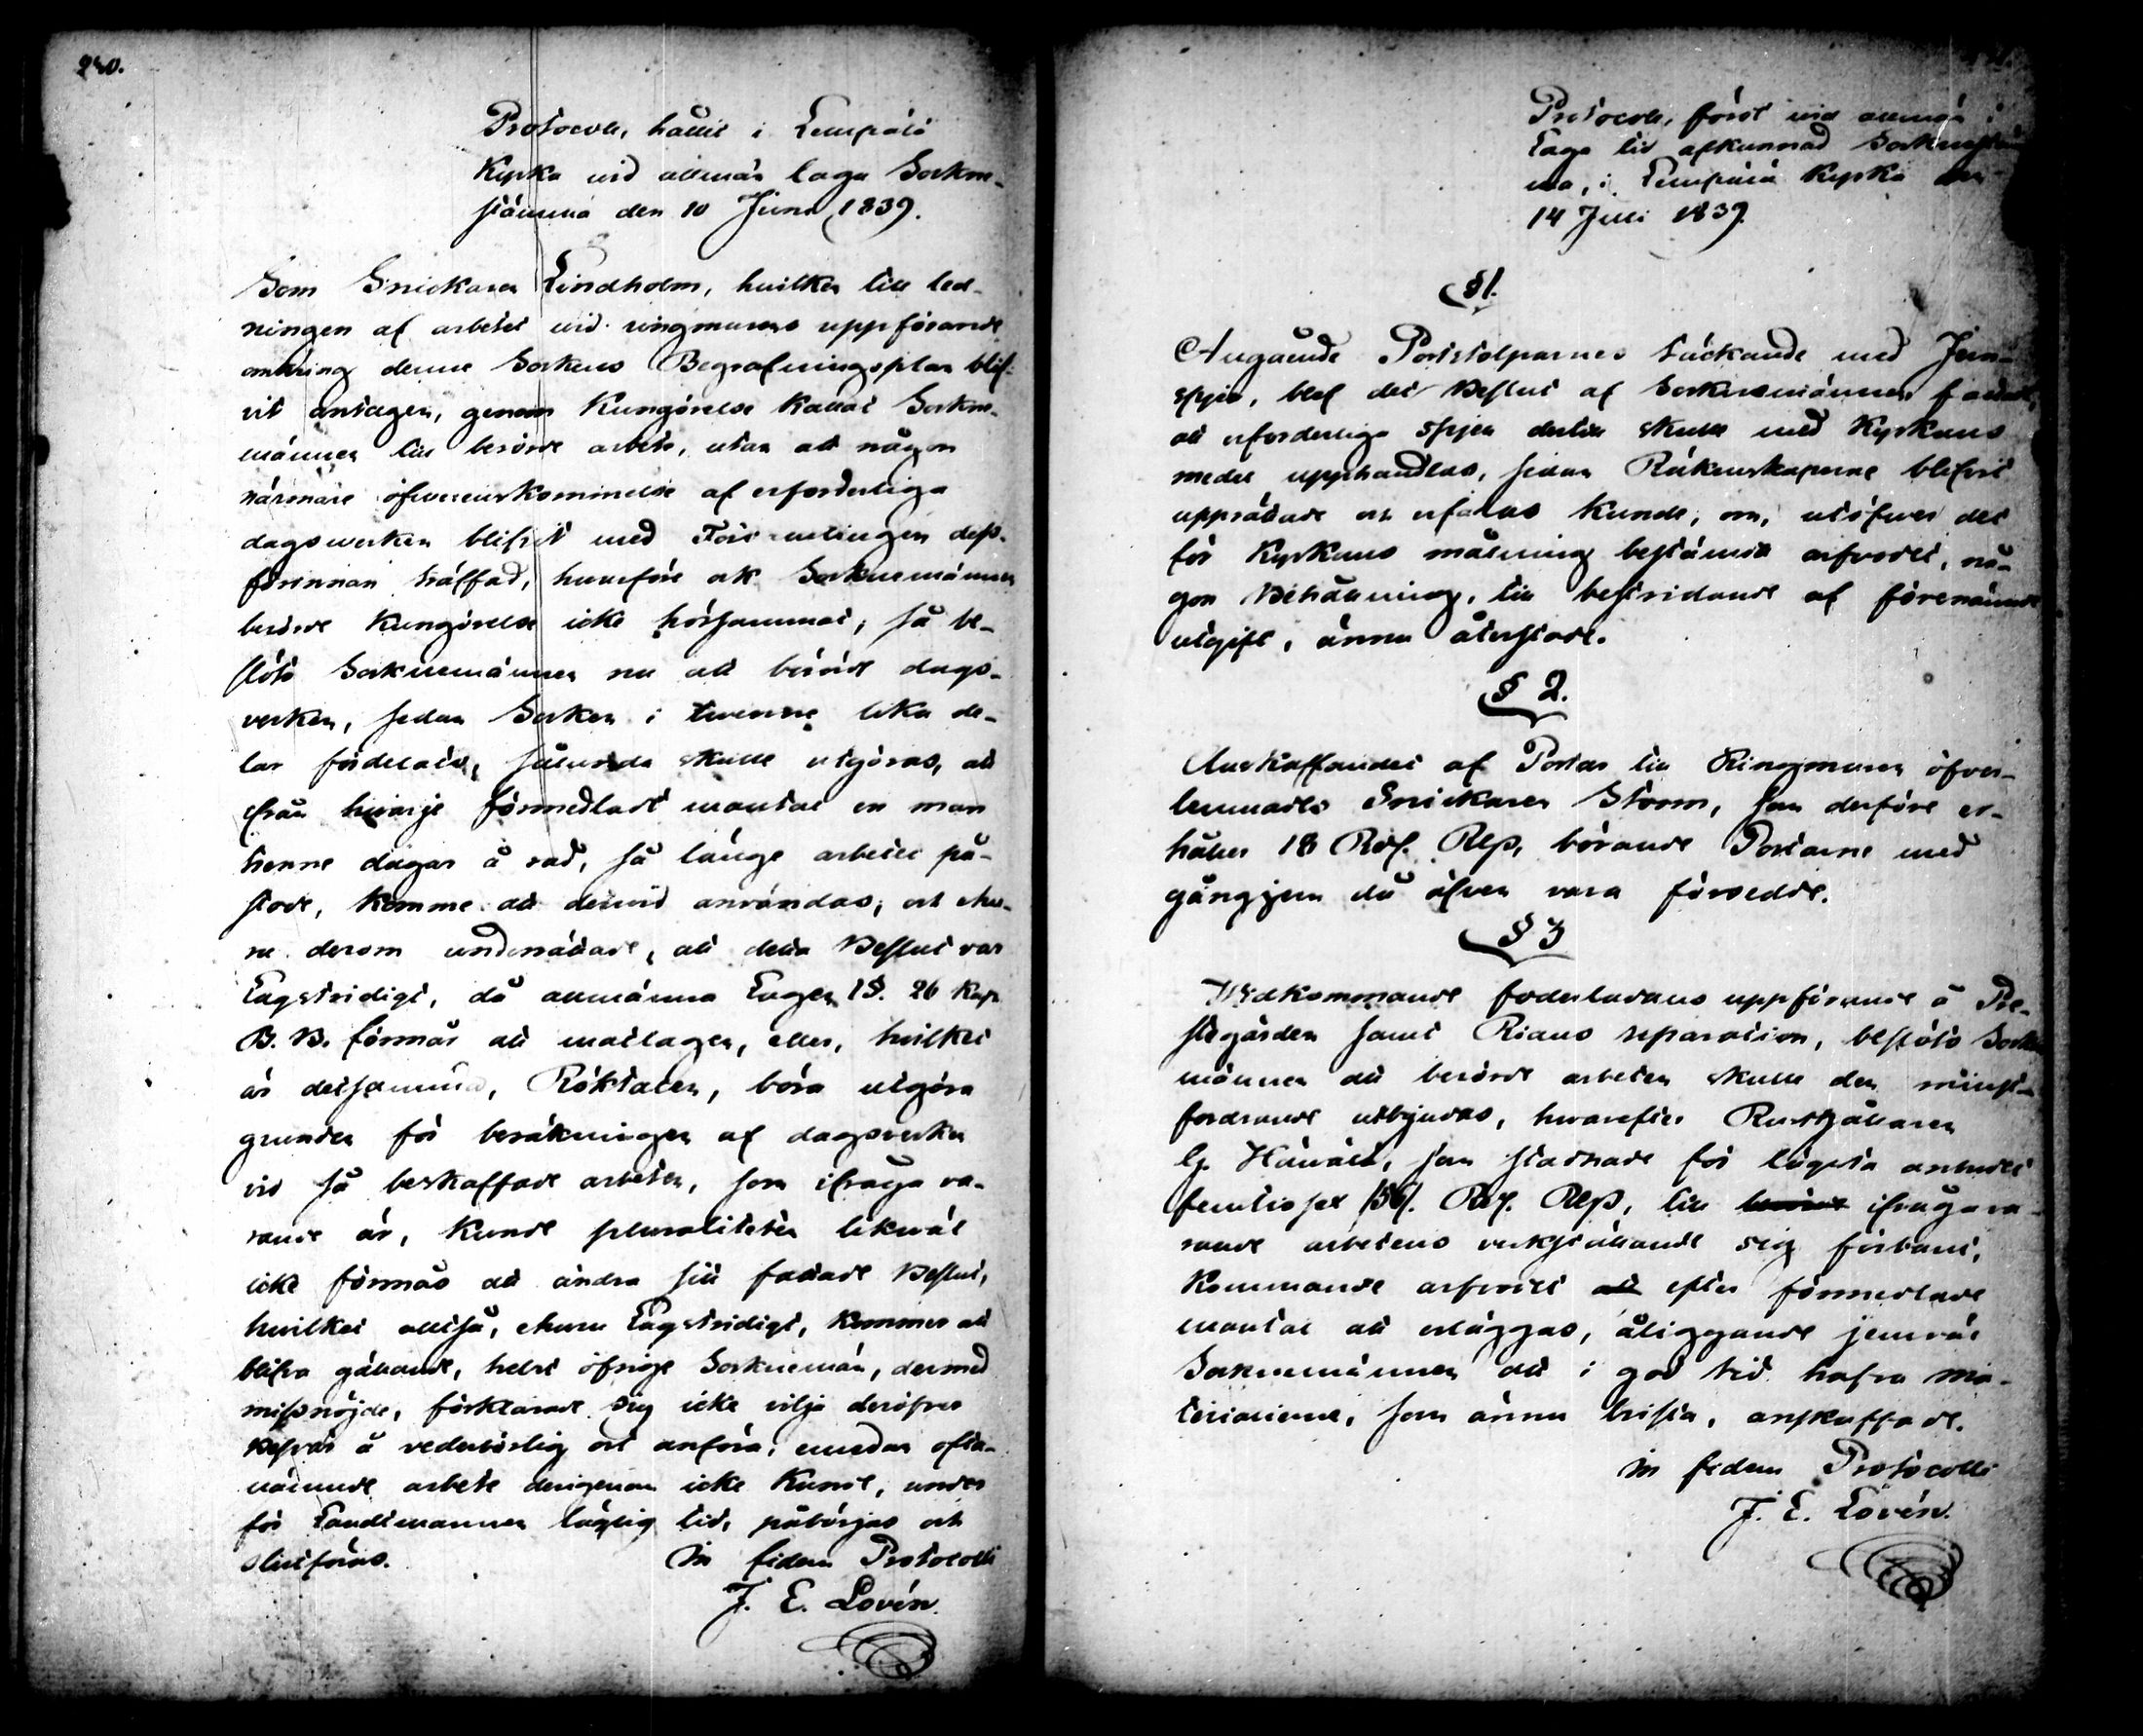 240.
Protocoll, hållit i Lempälä
Kyrka vid allmän laga Sockne-
stämma den 10 Juni 1839.
Som Snickaren Lindholm, hvilken till led-
ningen af arbetet vid ringmurens uppförande
omkring denne Sockens Begrafningsplan blif-
vit antagen, genom Kungörelse kallat Sockne-
männen till berörde arbete, utan att någon
närmare öfverenskommelse af erforderliga
dagsverken blifvit med Församlingen dess-
förinnan träffad, hvarföre ock Socknemännen
berörde Kungörelse icke hörsammat; så be-
slöto Socknemännen nu att berörde dags-
verken, sedan Socken i tvenne lika de-
lar fördelats, sålunda skulle utgöras, att
från hvarje förmedladt mantal en man
trenne dagar å rad, så länge arbetet på-
stode, komme att dervid användas; och ehu-
ru derom underrättade, att detta Beslut var
Lagstridigt, då allmänna Lagen 1§. 26 Kap.
B. B. förmår att matlagen, eller, hvilket
är detsamma, Röktalen, böra utgöra
grunden för beräkningen af dagsverken
vid så beskaffade arbeten, som ifråga va-
rande är, kunde pluraliteten likväl
icke förmås att ändra sitt fattade Beslut,
hvilket alltså, ehuru Lagstridigt, kommer att
blifva gällande, helst öfrige Socknemän, dermed
missnöjde, förklarade sig icke vilja deröfver
Besvär å vederbörlig ort anföra, emedan ofta-
nämnde arbete derigenom icke kunde, under
för Landtmannen läglig tid, påbörjas och
slutföras. In fidem Protocolli
J. E. Lovén.
Protocoll, fördt vid allmän i
Laga tid afkunnad Socknestäm-
ma, i Lempälä Kyrka den
14 Juli 1839.
§1.
Angående Portstolparnes täckande med Jern-
spjer, blef det Beslut af Socknemännen fattadt,
att erforderliga spjer dertill skulle med Kyrkans
medel upphandlas, sedan Räkenskaperne blifvit
upprättade och erfaras kunde, om, utöfver det
för Kyrkans målning bestämda arfvodet, nå-
gon Behållning, till bestridande af förenämnde
utgift, ännu återstode.
§ 2.
Anskaffandet af Portar till Ringmuren öfver-
lemnades Snickaren Storm, som derföre er-
håller 18 Rdr. Rbs, börande Portarne med
gångjern då äfven vara försedde.
§ 3
Vidkommande foderladans uppförande å Pre-
stegården samt Rians reparation, beslöto Sockne-
männen att berörde arbeten skulle den minst-
fordrande utbjudas, hvarefter Rusthållaren
G. , som stadnade för lägsta anbudet
femtiosex /56/. Rdr. Rbs, till ifrågava-
rande arbetens verkställande sig förband,
kommande arfvodet att efter förmedlade
mantal att erläggas, åliggande jemväl
Socknemännen att i god tid hafva ma-
terialierne, som ännu brista, anskaffade.
In fidem Protocolli
J. E. Lovén.